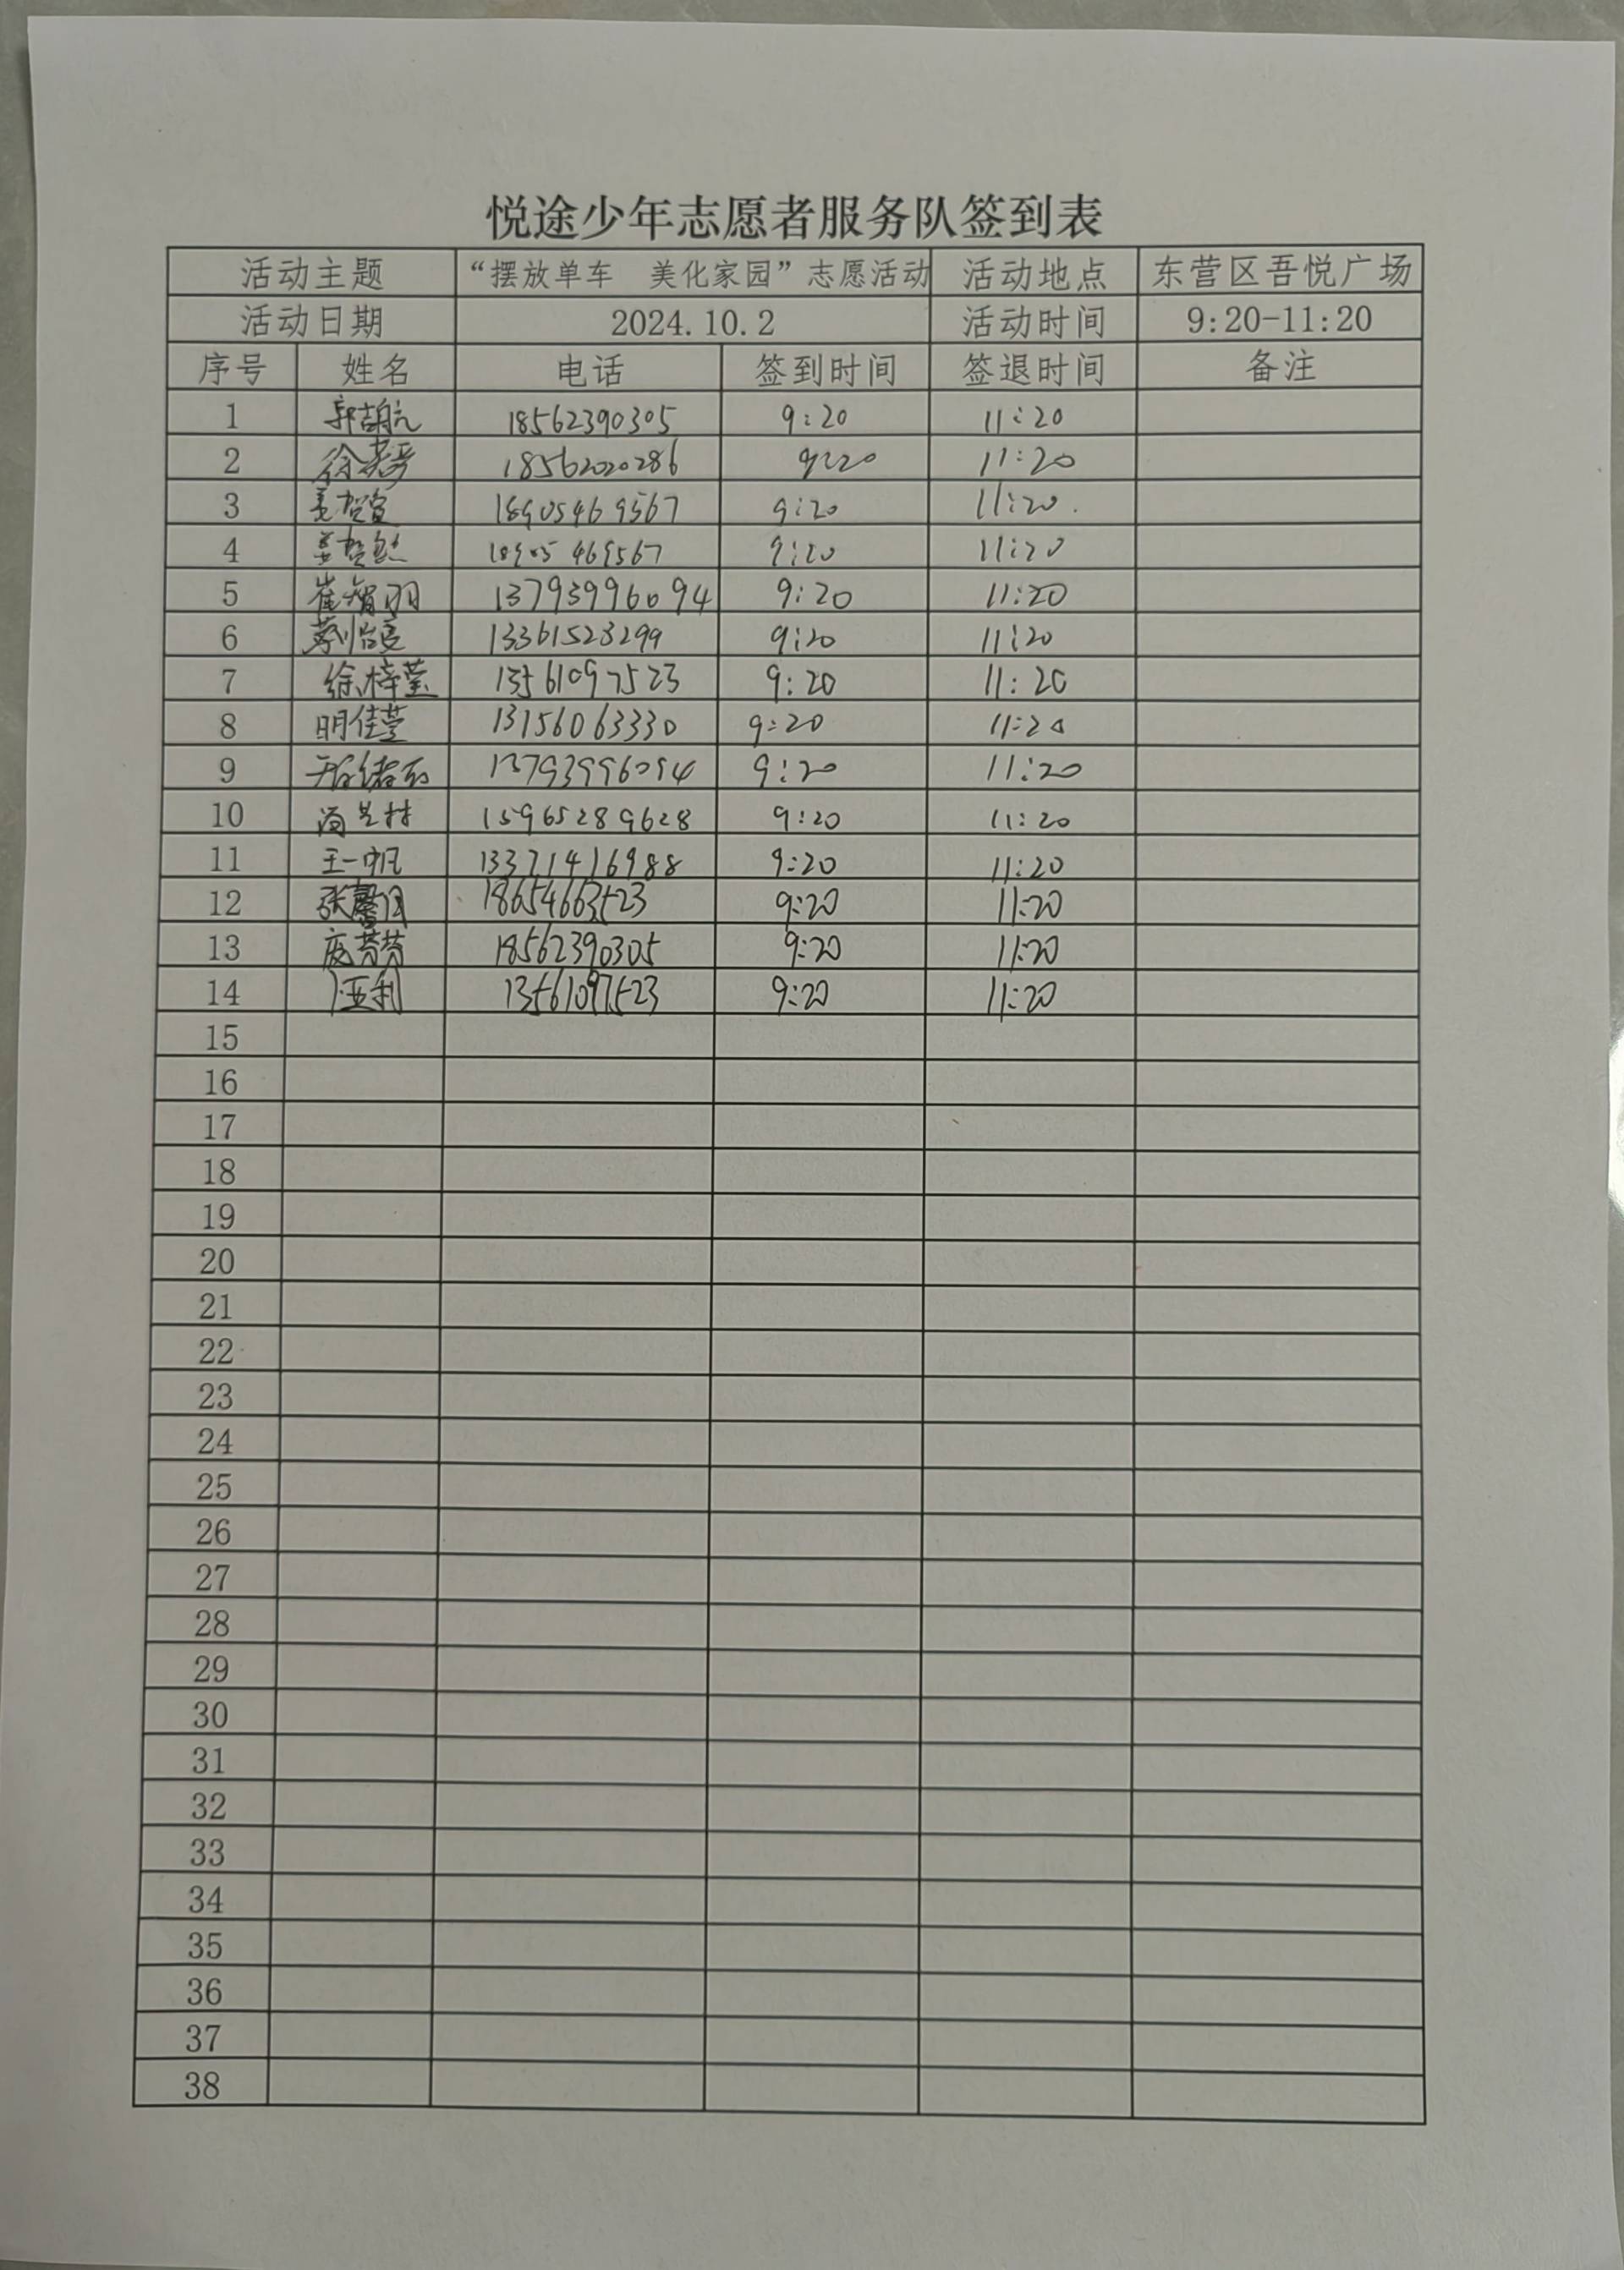 悦途少年志愿者服务队签到表
活动主题 “摆放单车 美化家园”志愿活动 活动地点 东营区吾悦广场
活动日期 2024.10.2 活动时间 9:20-11:20
序号 姓名 电话 签到时间 签退时间 备注
1 18562390305 9:20 11:20
2 18562020286 9:20 11:20
3 18905469567 9:20 11:20
4 18905469567 9:20 11:20
5 崔智羽 13793996094 9:20 11:20
6 13361523299 9:20 11:20
7 徐梓莹 13561097523 9:20 11:20
8 明佳莹 13156063330 9:20 11:20
9 13793996094 9:20 11:20
10 15965289628 9:20 11:20
11 王一帆 13371416988 9:20 11:20
12 18654663523 9:20 11:20
13 庞芬芬 18562390305 9:20 11:20
14 13561097523 9:20 11:20
15
16
17
18
19
20
21
22
23
24
25
26
27
28
29
30
31
32
33
34
35
36
37
38